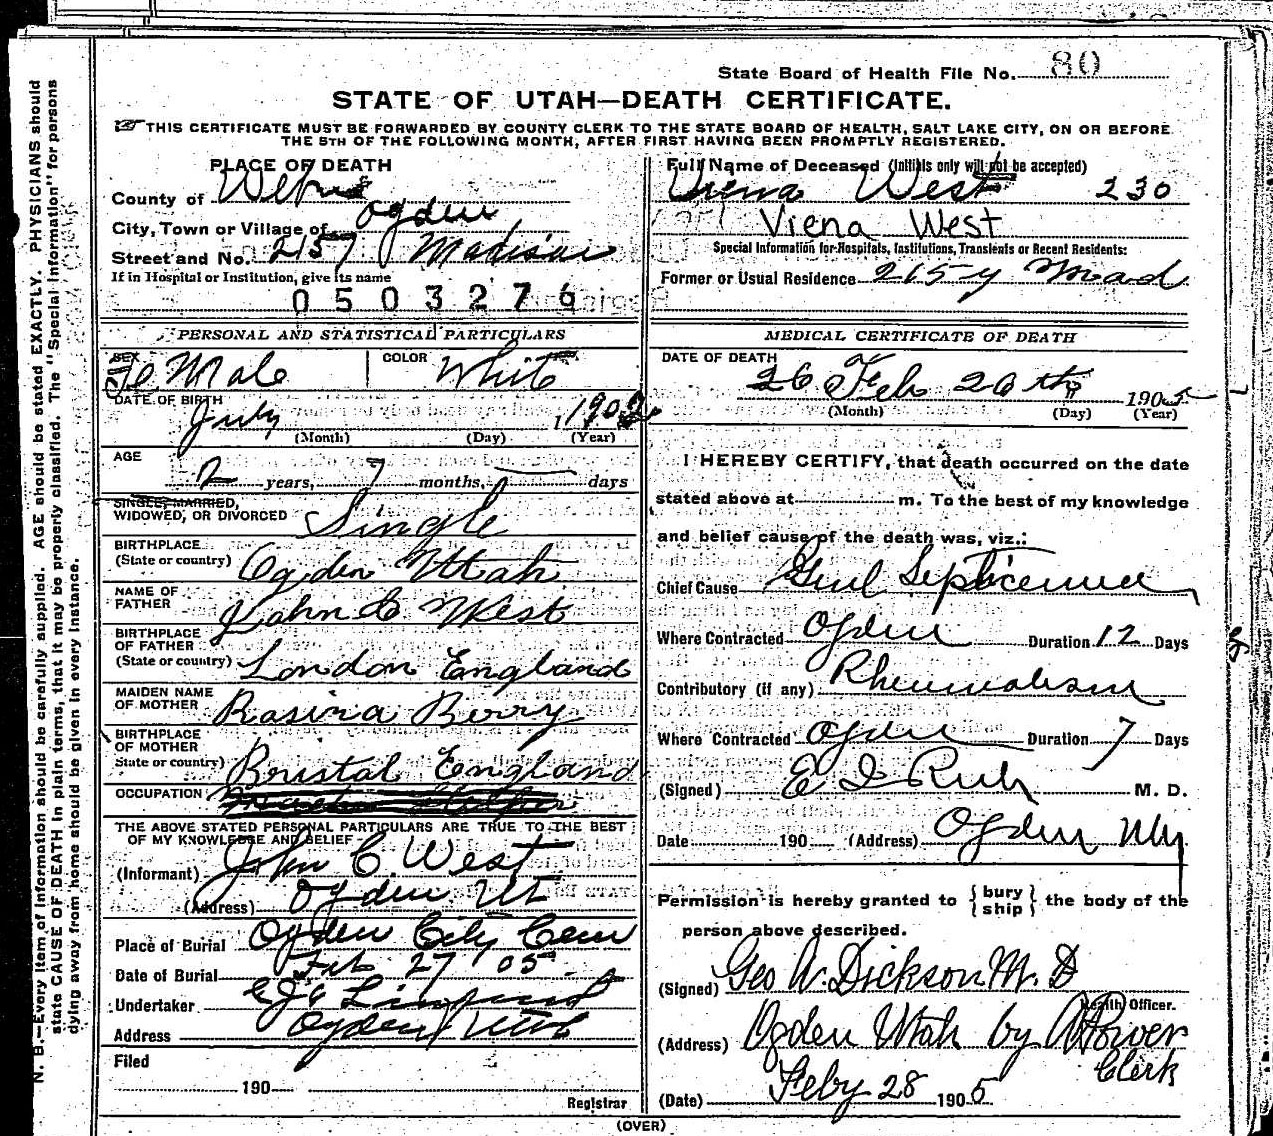 State Board of Health File No. 80
STATE OF UTAH—DEATH CERTIFICATE.
THIS CERTIFICATE MUST BE FORWARDED BY COUNTY CLERK TO THE STATE BOARD OF HEALTH, SALT LAKE CITY, ON OR BEFORE
THE 5TH OF THE FOLLOWING MONTH, AFTER FIRST HAVING BEEN PROMPTLY REGISTERED.
PLACE OF DEATH
County of Weber
City, Town or Village of Ogden
Street and No. 2157 Madison
If in Hospital or Institution, give its name
0503276
Full Name of Deceased (Initials only will not be accepted)
Viena West 230
Viena West
Special Information for Hospitals, Institutions, Transients or Recent Residents:
Former or Usual Residence 2157 Mad
PERSONAL AND STATISTICAL PARTICULARS
SEX Fe Male COLOR White
DATE OF BIRTH July 1902
(Month) (Day) (Year)
AGE 2 years, 7 months, days
SINGLE, MARRIED,
WIDOWED, OR DIVORCED Single
BIRTHPLACE
(State or country) Ogden Utah
NAME OF
FATHER John C West
BIRTHPLACE
OF FATHER
(State or country) London England
MAIDEN NAME
OF MOTHER Rosina Berry
BIRTHPLACE
OF MOTHER
State or country) Bristal England
OCCUPATION
THE ABOVE STATED PERSONAL PARTICULARS ARE TRUE TO THE BEST
OF MY KNOWLEDGE AND BELIEF
(Informant) John C. West
(Address) Ogden Ut
Place of Burial Ogden City Cem
Date of Burial Feb 27 05
Undertaker
Address Ogden Utah
Filed
190
Registrar
MEDICAL CERTIFICATE OF DEATH
DATE OF DEATH
26 Feb 26th 1905
(Month) (Day) (Year)
I HEREBY CERTIFY, that death occurred on the date
stated above at m. To the best of my knowledge
and belief cause of the death was, viz.:
Chief Cause Genl Septicemia
Where Contracted Ogden Duration 12 Days
Contributory (if any) Rheumatism
Where Contracted Ogden Duration 7 Days
(Signed) E I Rich M. D.
Date 190 (Address) Ogden
Permission is hereby granted to {bury ship} the body of the
person above described.
(Signed) Geo W. Dickson M. D
Health Officer.
(Address) Ogden Utah by
Clerk
(Date) Feby 28 1905
(OVER)
N. B.—Every item of information should be carefully supplied. AGE should be stated EXACTLY. PHYSICIANS should
state CAUSE OF DEATH in plain terms, that it may be properly classified. The "Special Information" for persons
dying away from home should be given in every instance.